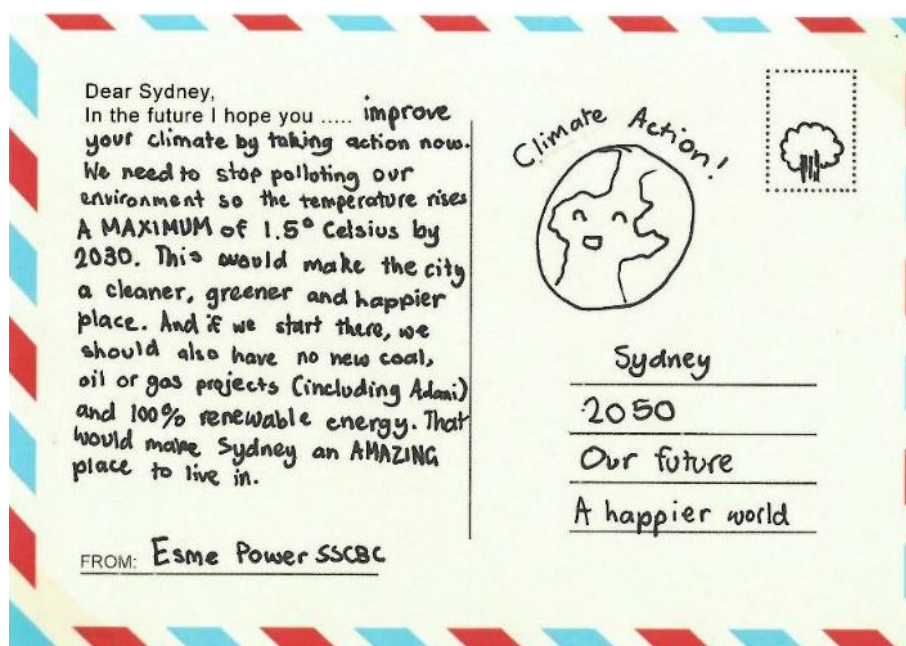 Dear Sydney,
In the future I hope you ..... improve
your climate by taking action now.
We need to stop polloting our
environment so the temperature rises
A MAXIMUM of 1.5° Celsius by
2030. This would make the city
a cleaner, greener and happier
place. And if we start there, we
should also have no new coal,
oil or gas projects (including Adani)
and 100% renewable energy. That
would make Sydney an AMAZING
place to live in.
FROM: Esme Power SSCBC
Climate Action!
Sydney
2050
Our future
A happier world